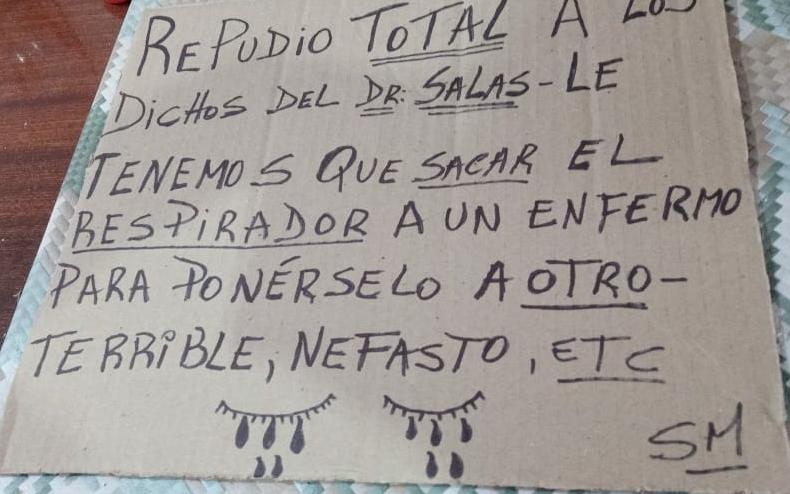 REPUDIO TOTAL A LOS
DICHOS DEL DR: SALAS-LE
TENEMOS QUE SACAR EL
RESPIRADOR A UN ENFERMO
PARA PONÉRSELO A OTRO-
TERRIBLE, NEFASTO, ETC
SM